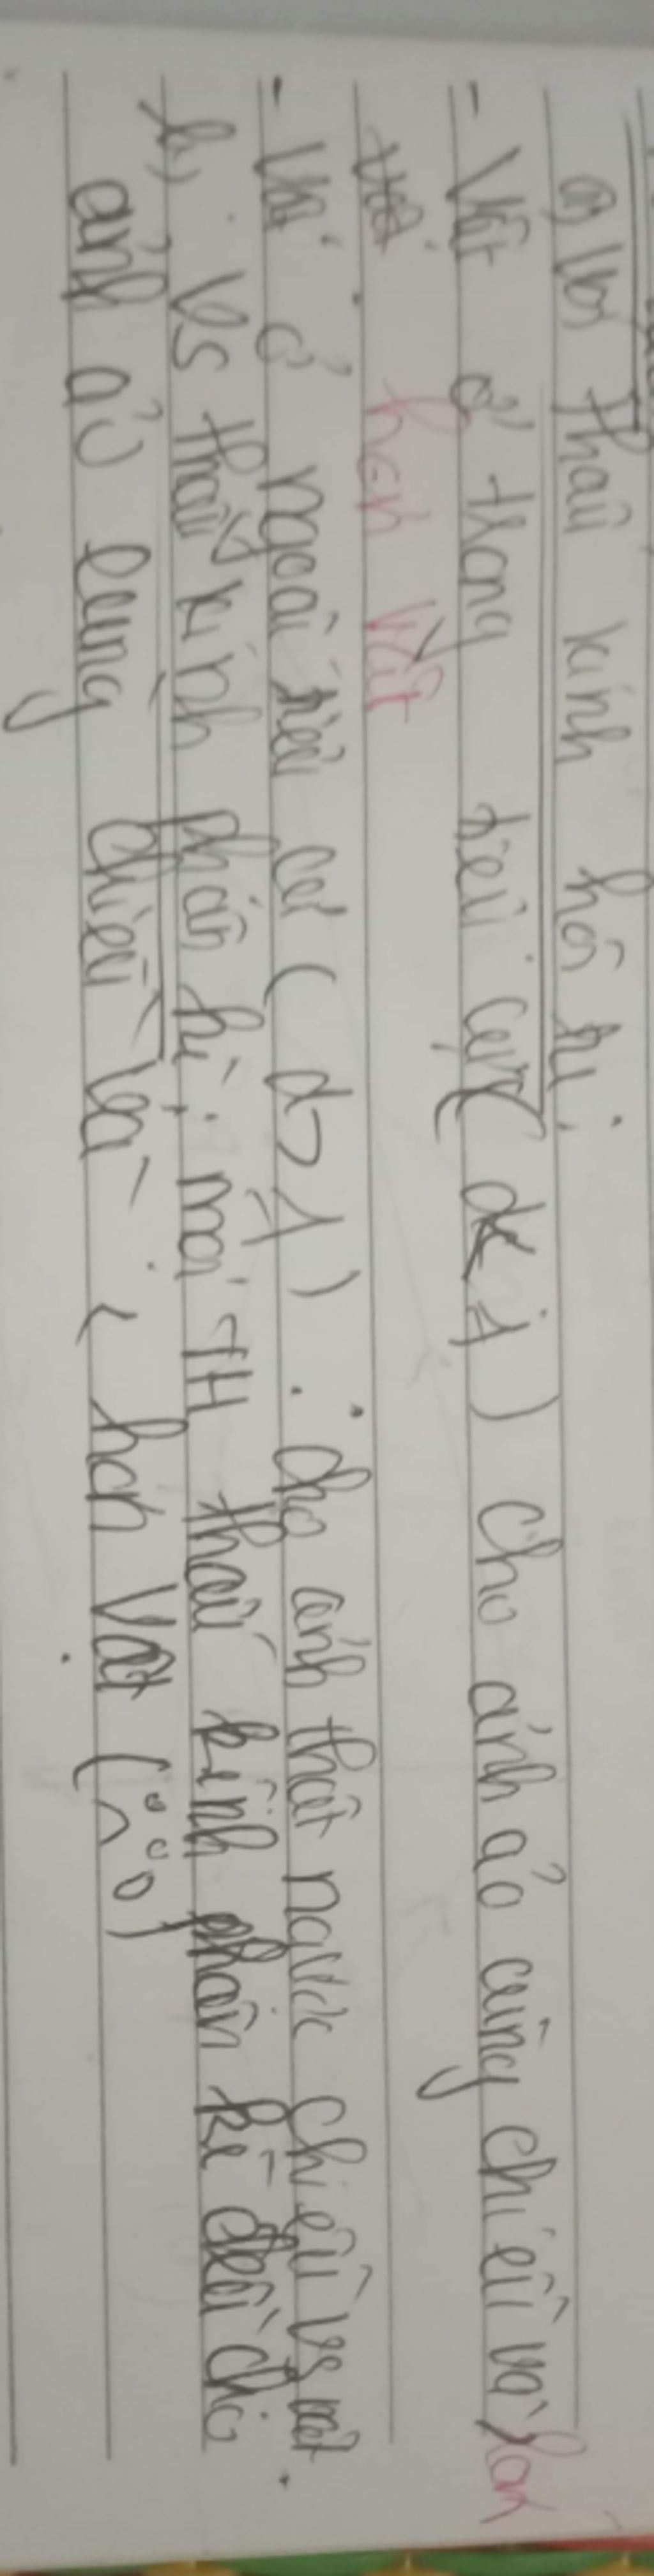 a) Với thấu kính hội tụ:
- Vật ở trong tiêu cự (d< f) cho ảnh ảo cùng chiều và lớn
hơn vật
- Vật ở ngoài tiêu cự (d > f) : cho ảnh thật ngược chiều vs vật.
b) Vs thấu kính phân kì: mọi TH thấu kính phân kì đều cho
ảnh ảo cùng chiều và < hơn vật